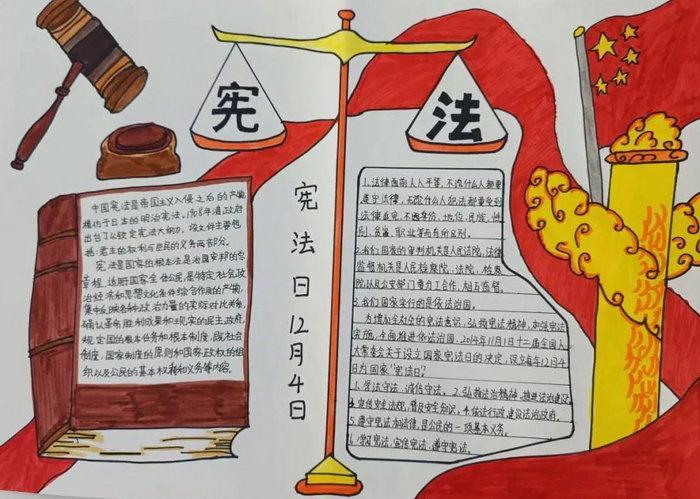 宪
法
宪法日12月4日
中国宪法是帝国主义入侵之后的产物,
模仿于日本的明治宪法,1908年清政府
出台了《钦定宪法大纲》。该文件主要包
括:君主的权利与臣民的义务两部分。
宪法是国家的根本法是治国安邦的总
章程,适用国家全体公民,是特定社会政
治经济和思想文化条件综合作用的产物,
集中反映各种政治力量的实际对比关系,
确认革命胜利成果和现实的民主政府,
规定国的根本任务和根本制度,既社会
制度、国家制度的原则和国家政权的组
织以及公民的基本权利和义务等内容。
1.法律面前人人平等,不论什么人都要
遵守法律,不论什么人犯法都要受到
法律追究,不因掌龄、地位、民族、性
别、贫富、职业等有所区别。
2.我们国家的审判机关是人民法院,法律
监督机关是人民检察院,法院、检察
院以及公安部门要分工合作,相互监督。
3.我们国家实行的是依法治国。
为增加全社会的宪法意识,弘扬宪法精神,加强宪法
实施,全面推进依法治国,2014年11月1日十二届全国人
大常委会关于设立国家宪法日的决定,设立每年12月4
日为国家“宪法日”。
1.学法守法、诚信守法。2.弘扬法治精神、推进法治建设
3.宣传宪法法规,普及安全知识。4.依法行政建设法治政府。
5.遵守宪法和法律,是公民的一项基本义务。
6.学习宪法、宣传宪法、遵守宪法。